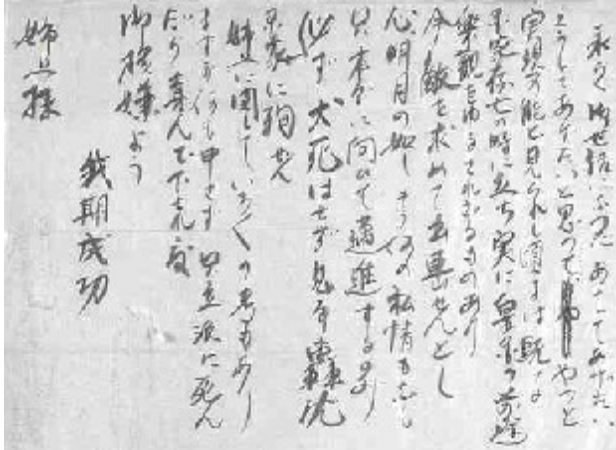 永々御世話になつた
あゝしてあげたい
こうしてあげたいと思つて やつと
実現可能と見られし
国家存亡の時に立ち実に皇国の前途
楽観をゆるされざるものあり
今敵を求めて出撃せんとし
心明月の如し 何の私情もなし
只本分に向ひて邁進するのみ
必ず犬死はせず見事轟沈
国家に殉ぜん
姉上に関していろ〳〵の
ますが何も申さず 只立派に死んだ
だけ喜んで下され度
御機嫌よう
我期成功
姉上様